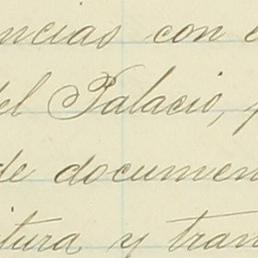 ncias con e
del Palacio, p
de documen
itura y tran